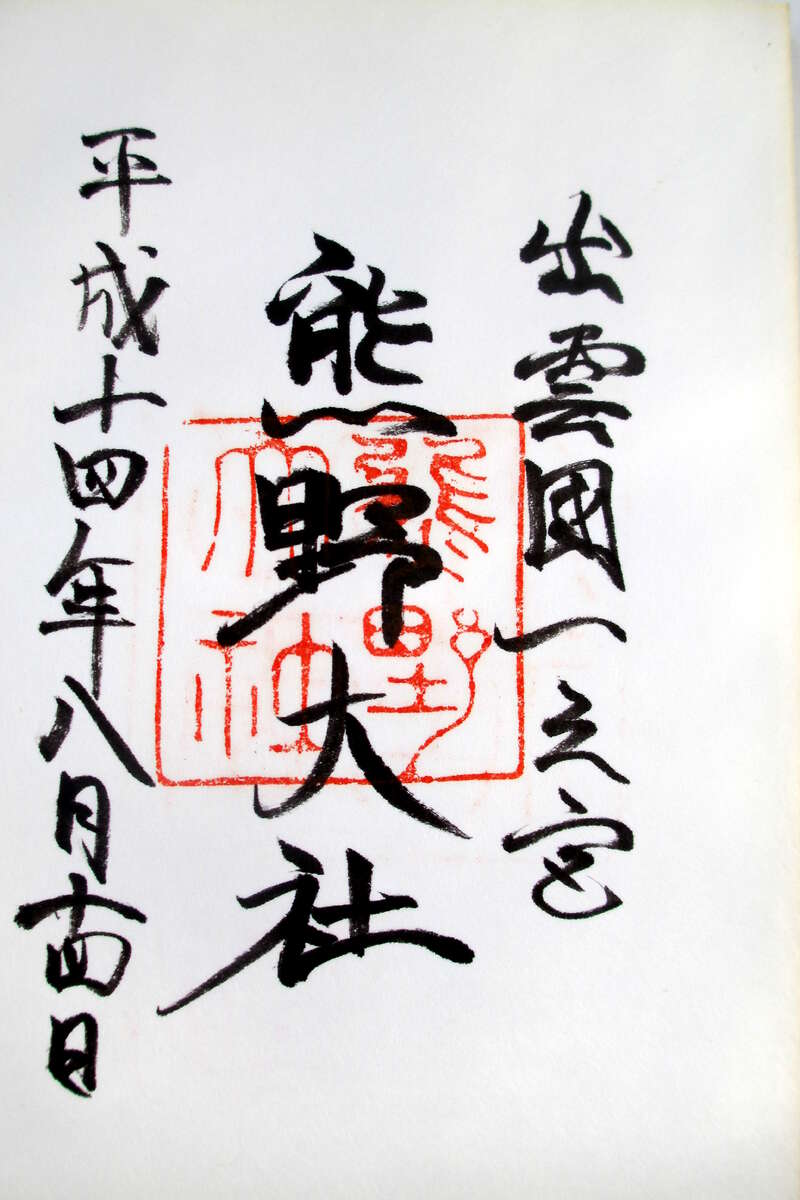 出雲國一之宮
熊野大社
熊野大社
平成十四年八月十四日